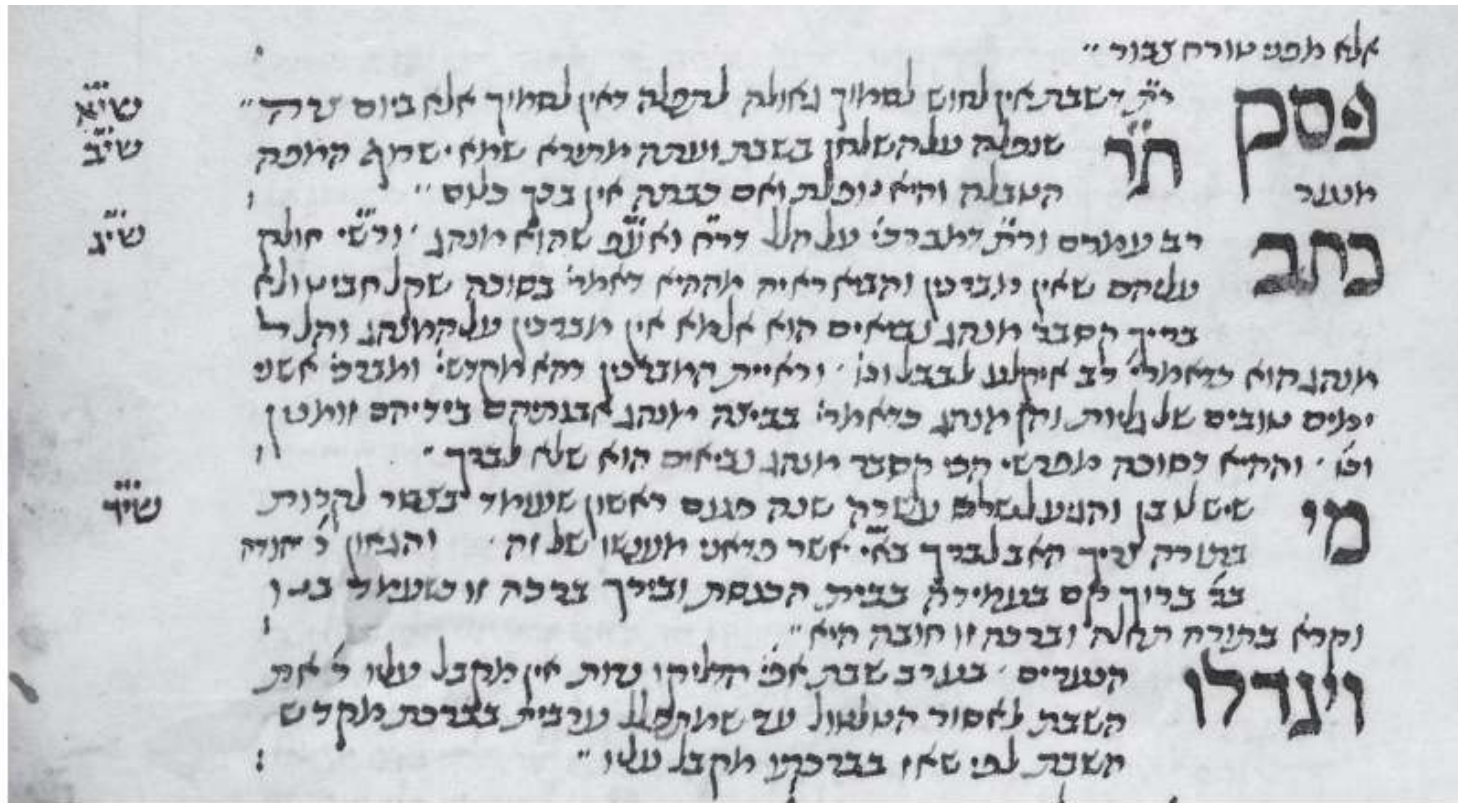 אלא מפני טורח צבור״
פסק ר״ת דשבת אין לחוש לסמוך גאולה לתפלה דאין לסמוך אלא ביום צרה״ שי״א
נר שנפלה על השלחן בשבת ועתה מתירא שמא ישרוף המפה שי״ב
מנער הטבלה והיא נופלת ואם כבתה אין בכך כלום״
כתב רב עמרם ור״ת דמברכי׳ על הלל דר״ח ואע״פ שהוא מנהג׳ ורש״י חולק שי״ג
עליהם שאין מברכין והביא ראיה מההיא דאמר׳ בסוכה שקל חביט ולא
בריך קסבר מנהג נביאים הוא אלמא אין מברכין על המנהג והלל
מנהג הוא כדאמרי׳ רב איקלע לבבל וכו׳ וראיית המברכין דהא מקדשי׳ ומברכי׳ אשני
ימים טובים של גליות והן מנהג כדאמר׳ בביצה מנהג אבותיהם בידיהם
וכו׳ וההיא דסוכה מפרשי הכי קסבר מנהג נביאים הוא שלא לברך״
מי שיש לו בן והגיע לשלש עשרה שנה פעם ראשון שיעמוד בצבור לקרות שי״ד
בתורה צריך האב לברך בא״י אשר פדאני מעונשו של זה׳ והגאון ר׳ יהודה
בר ברוך קם בעמידה בבית הכנסת ובירך ברכה זו כשעמד בנו
וקרא בתורה תחלה וברכה זו חובה היא״
הנערים׳ בערב שבת אפי׳ הדליקו נרות אין מקבל עליו את
השבת לאסור הטלטול עד שמתפלל ערבית בברכת מקדש
השבת לפי שאז בברכתו מקבל עליו״